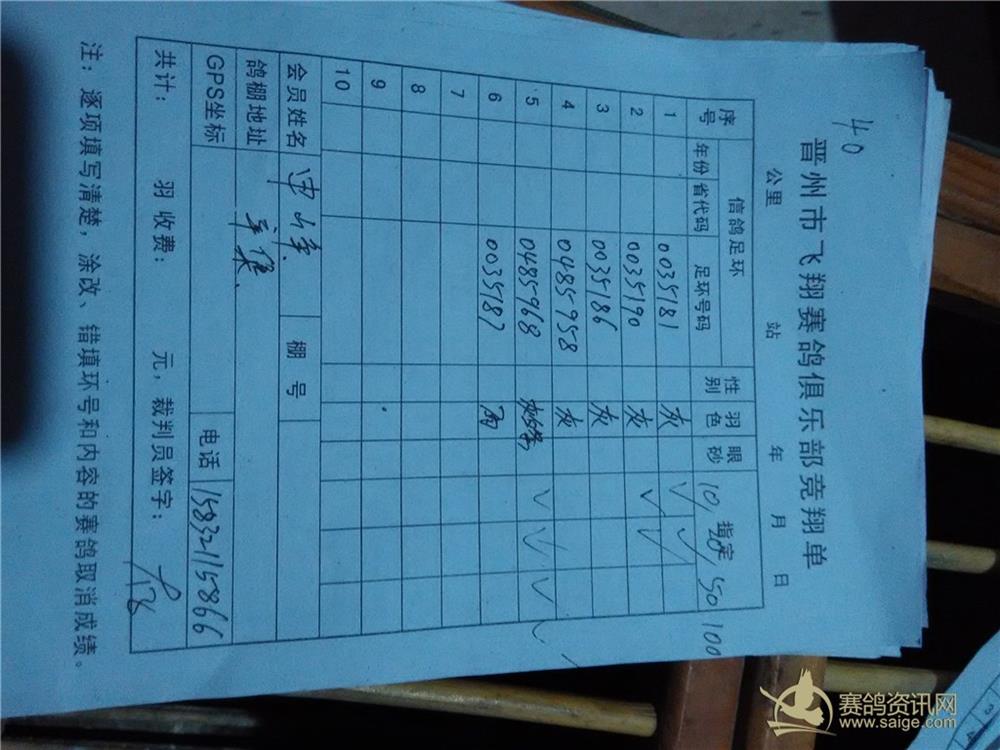 40
晋州市飞翔赛鸽俱乐部竞翔单
公里 站 年 月 日
序号 信鸽足环 性别 羽色 眼砂 指定
年份 省代码 足环号码 10 20 50 100
1 0035181 灰 ✓ ✓
2 0035190 灰 ✓ ✓
3 0035186 灰
4 0485958 灰
5 0485968 ✓ ✓ ✓ ✓
6 0035187 雨
7
8
9
10
会员姓名 棚号
鸽棚地址 辛集
GPS坐标 电话 15832115866
共计： 羽 收费： 元，裁判员签字：
注：逐项填写清楚，涂改、错填环号和内容的赛鸽取消成绩。
赛鸽资讯网
www.saige.com
3
4